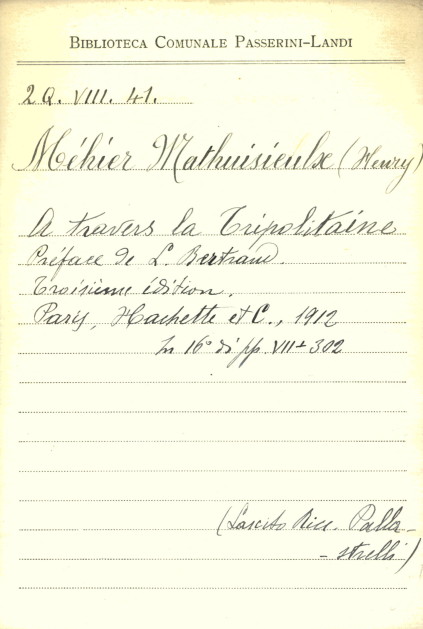 BIBLIOTECA COMUNALE PASSERINI-LANDI
2Q. VIII. 41.
Méhier Mathuisieulx (Henry)
A travers la Tripolitaine
Préface de L. Bertrand.
Troisième édition.
Paris, Hachette et C., 1912
In 16° di pp. VII+302
(Lascito Ricc. Palla-
-strelli)